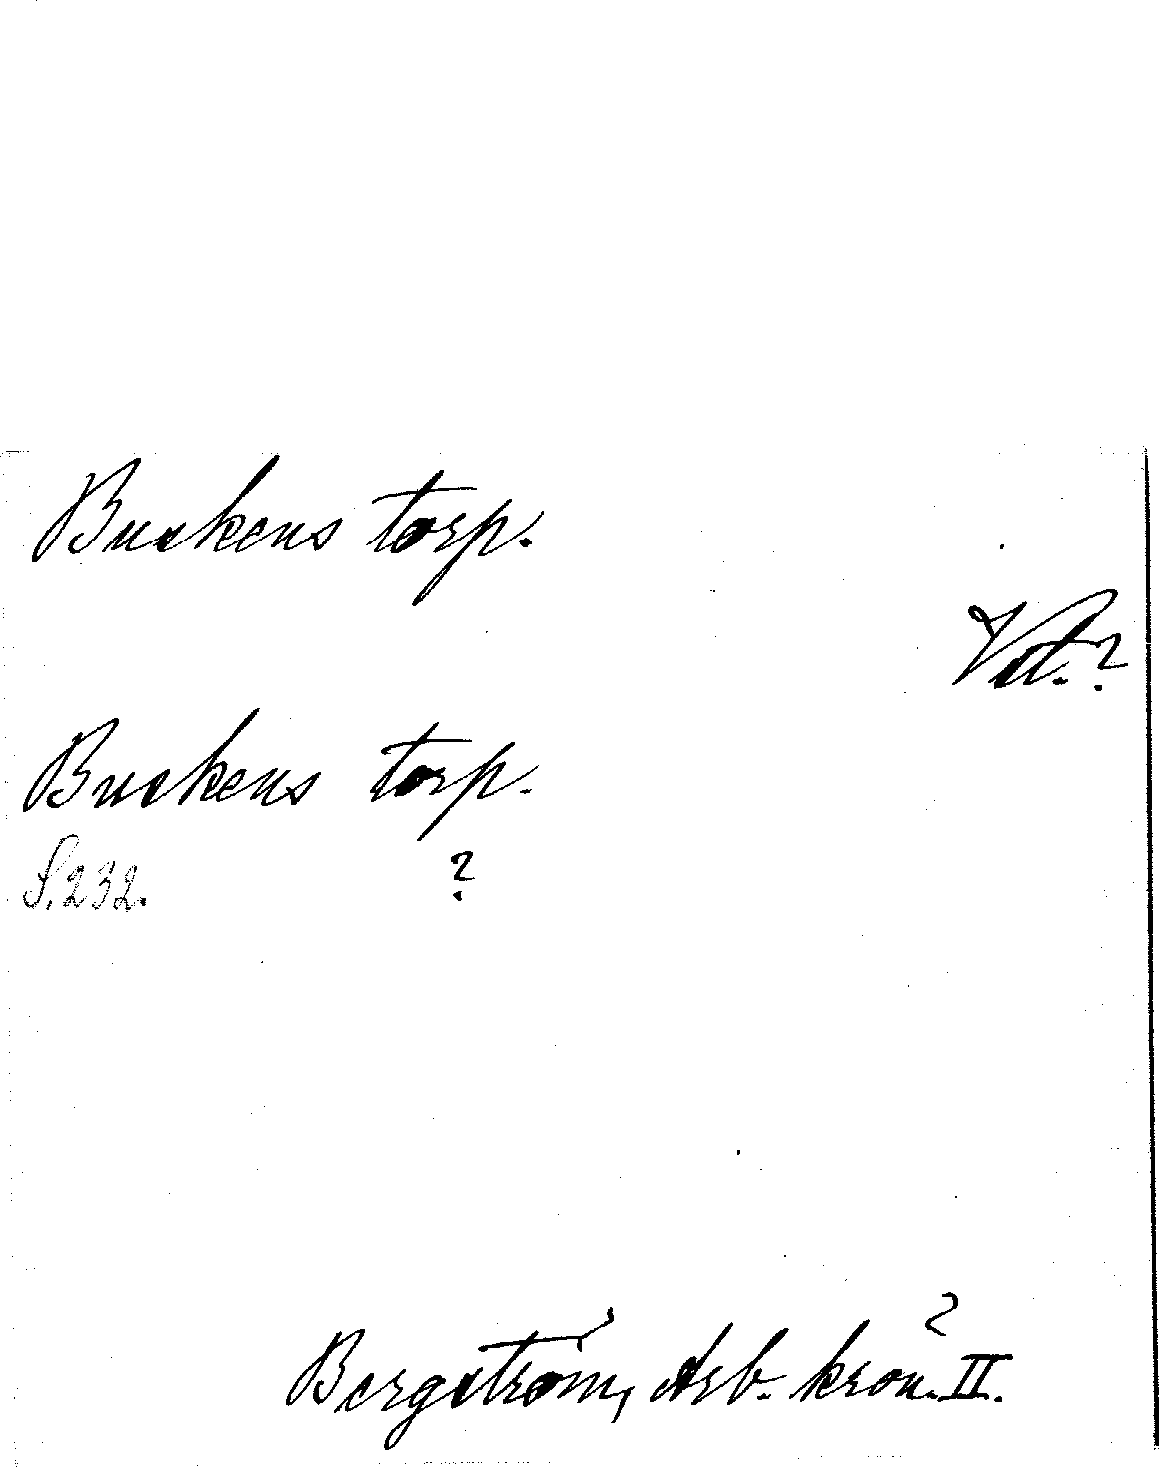 Buskens torp.
Vst.?
Buskens torp.
S. 232. ?
Bergström, Arb. kron. II.